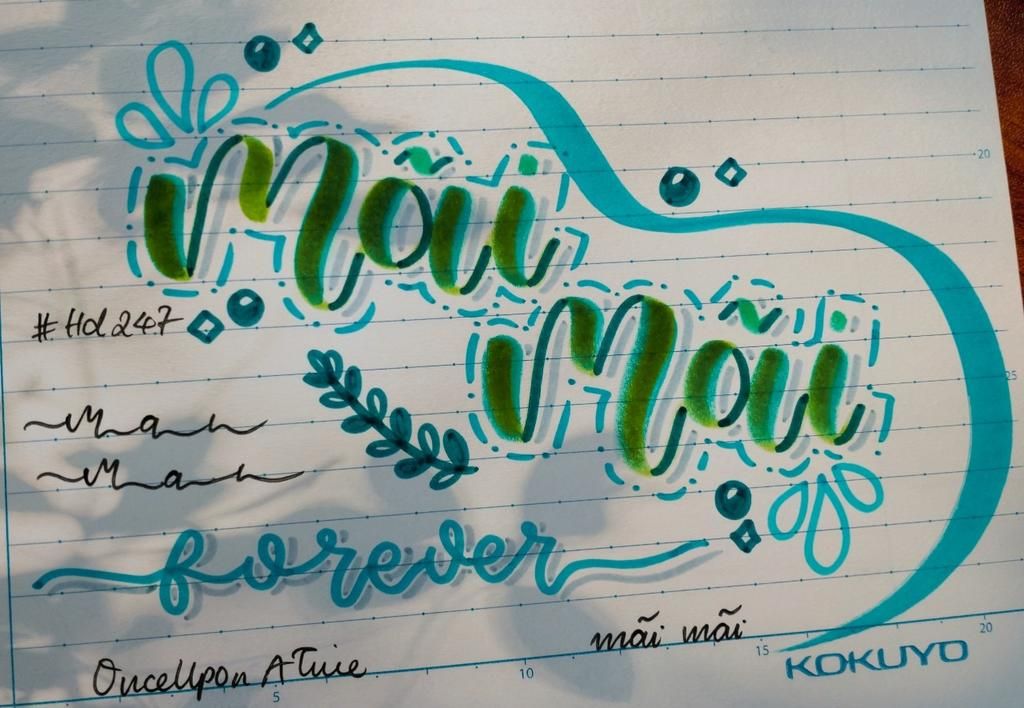 mãi
20
mãi
25
forever
mãi mãi
OnceUpon ATime
5 10 15 20
KOKUYO